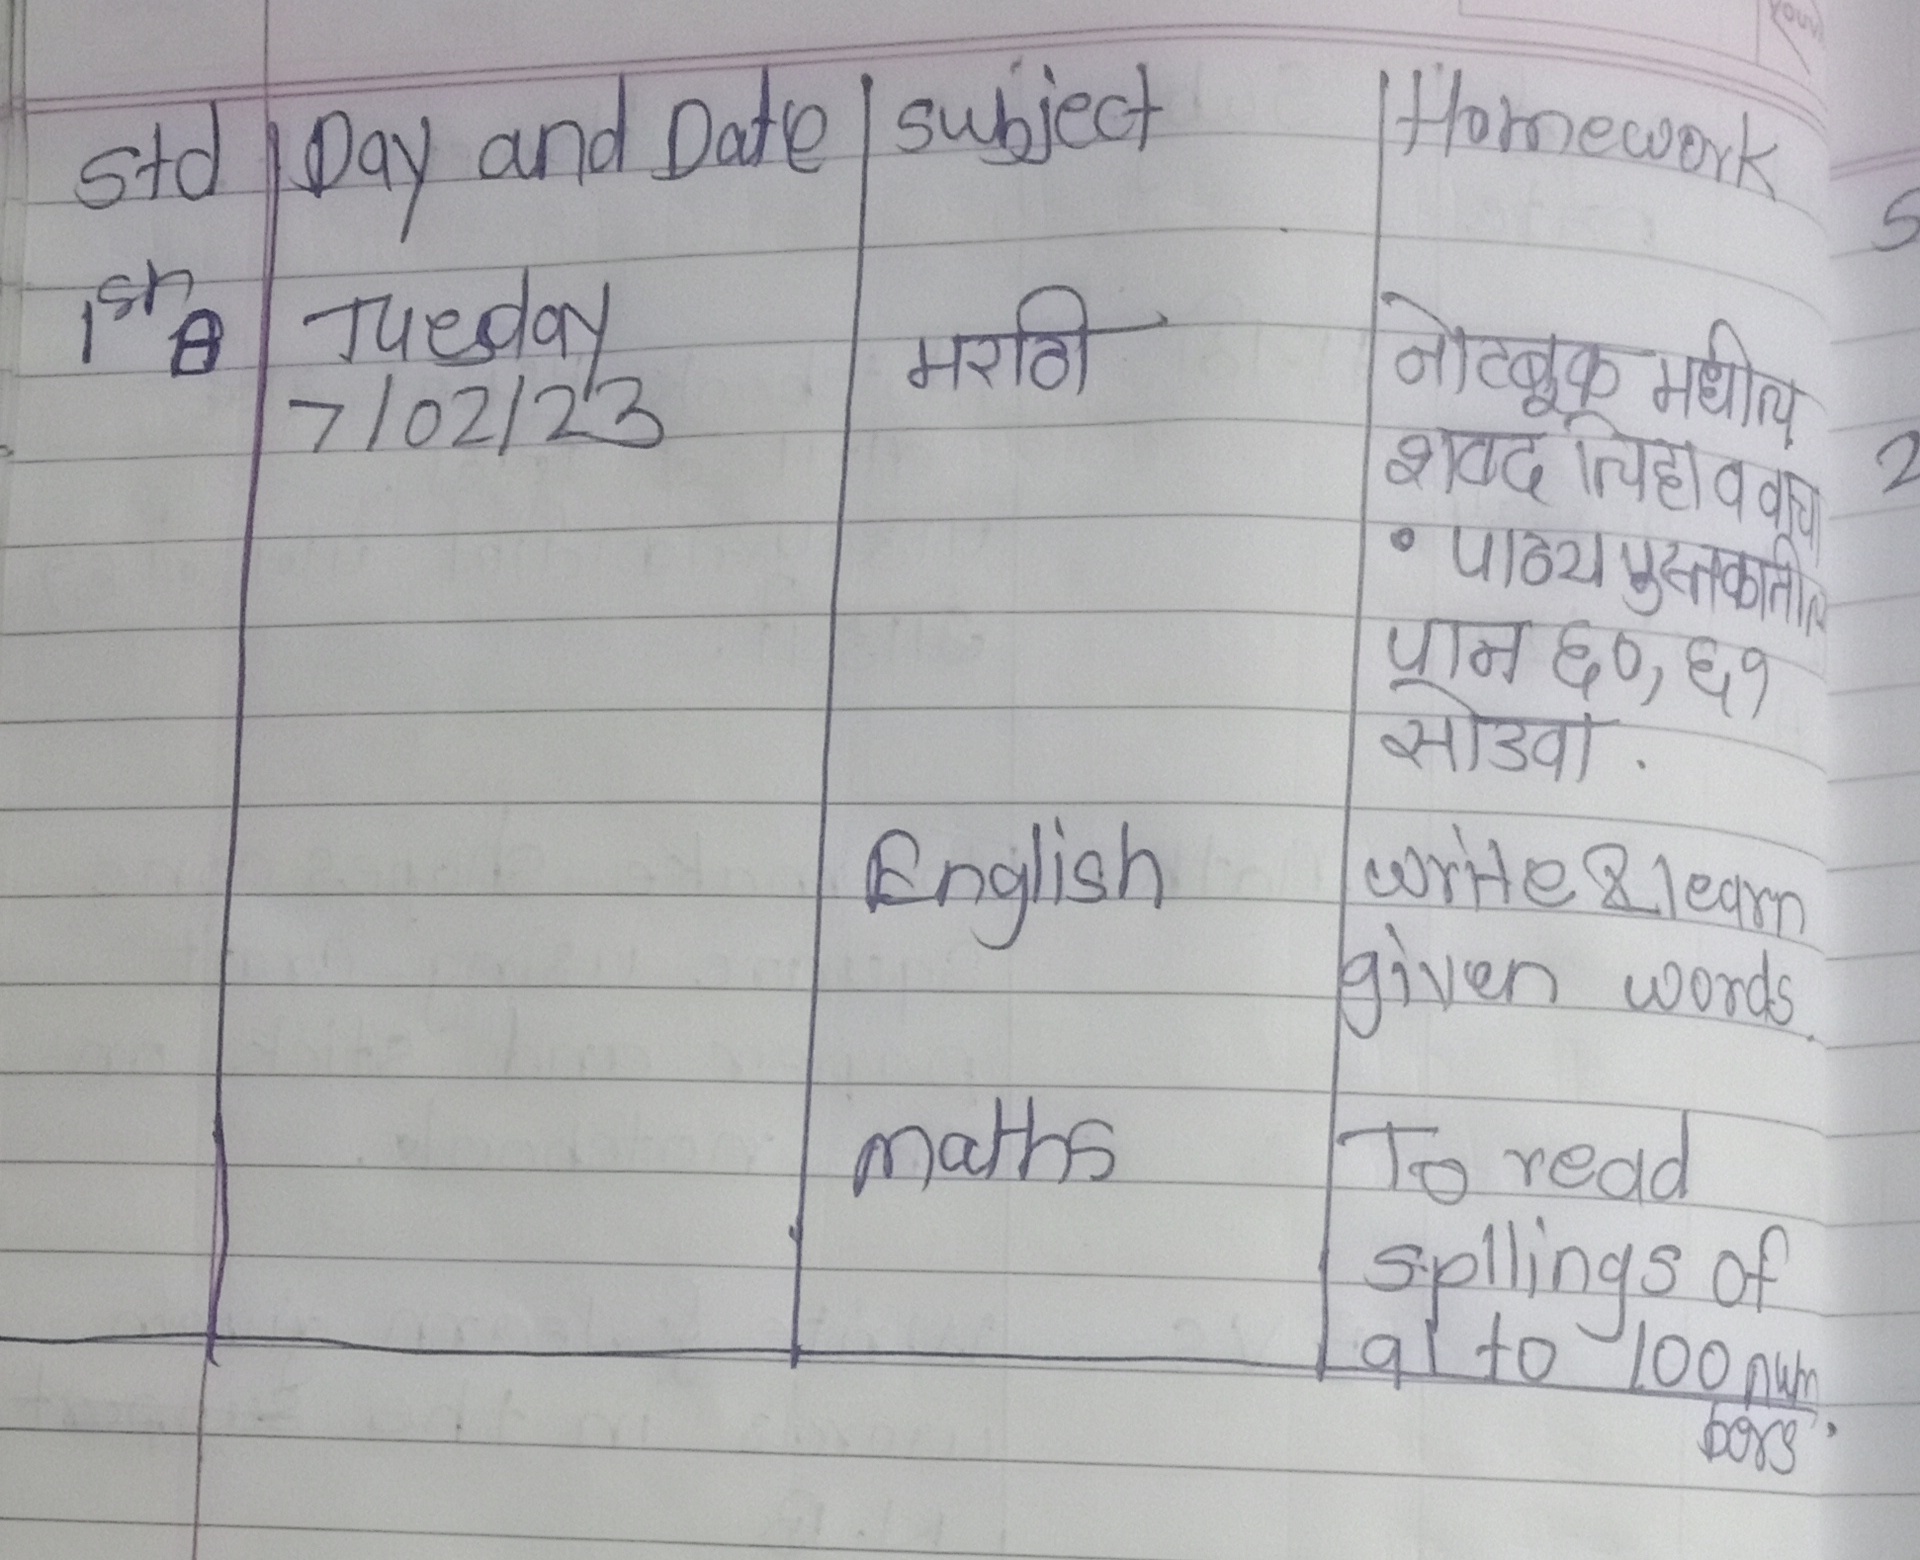 Std Day and Date subject Homework
1st B Tuesday मराठी नोटबूक मधील
7/02/23 शवद लिहा व वाचा
• पाठ्य पुस्तकातील
पान ६०, ६१
सोडवा.
English write & learn
given words.
maths To read
spllings of
91 to 100 num
bers.